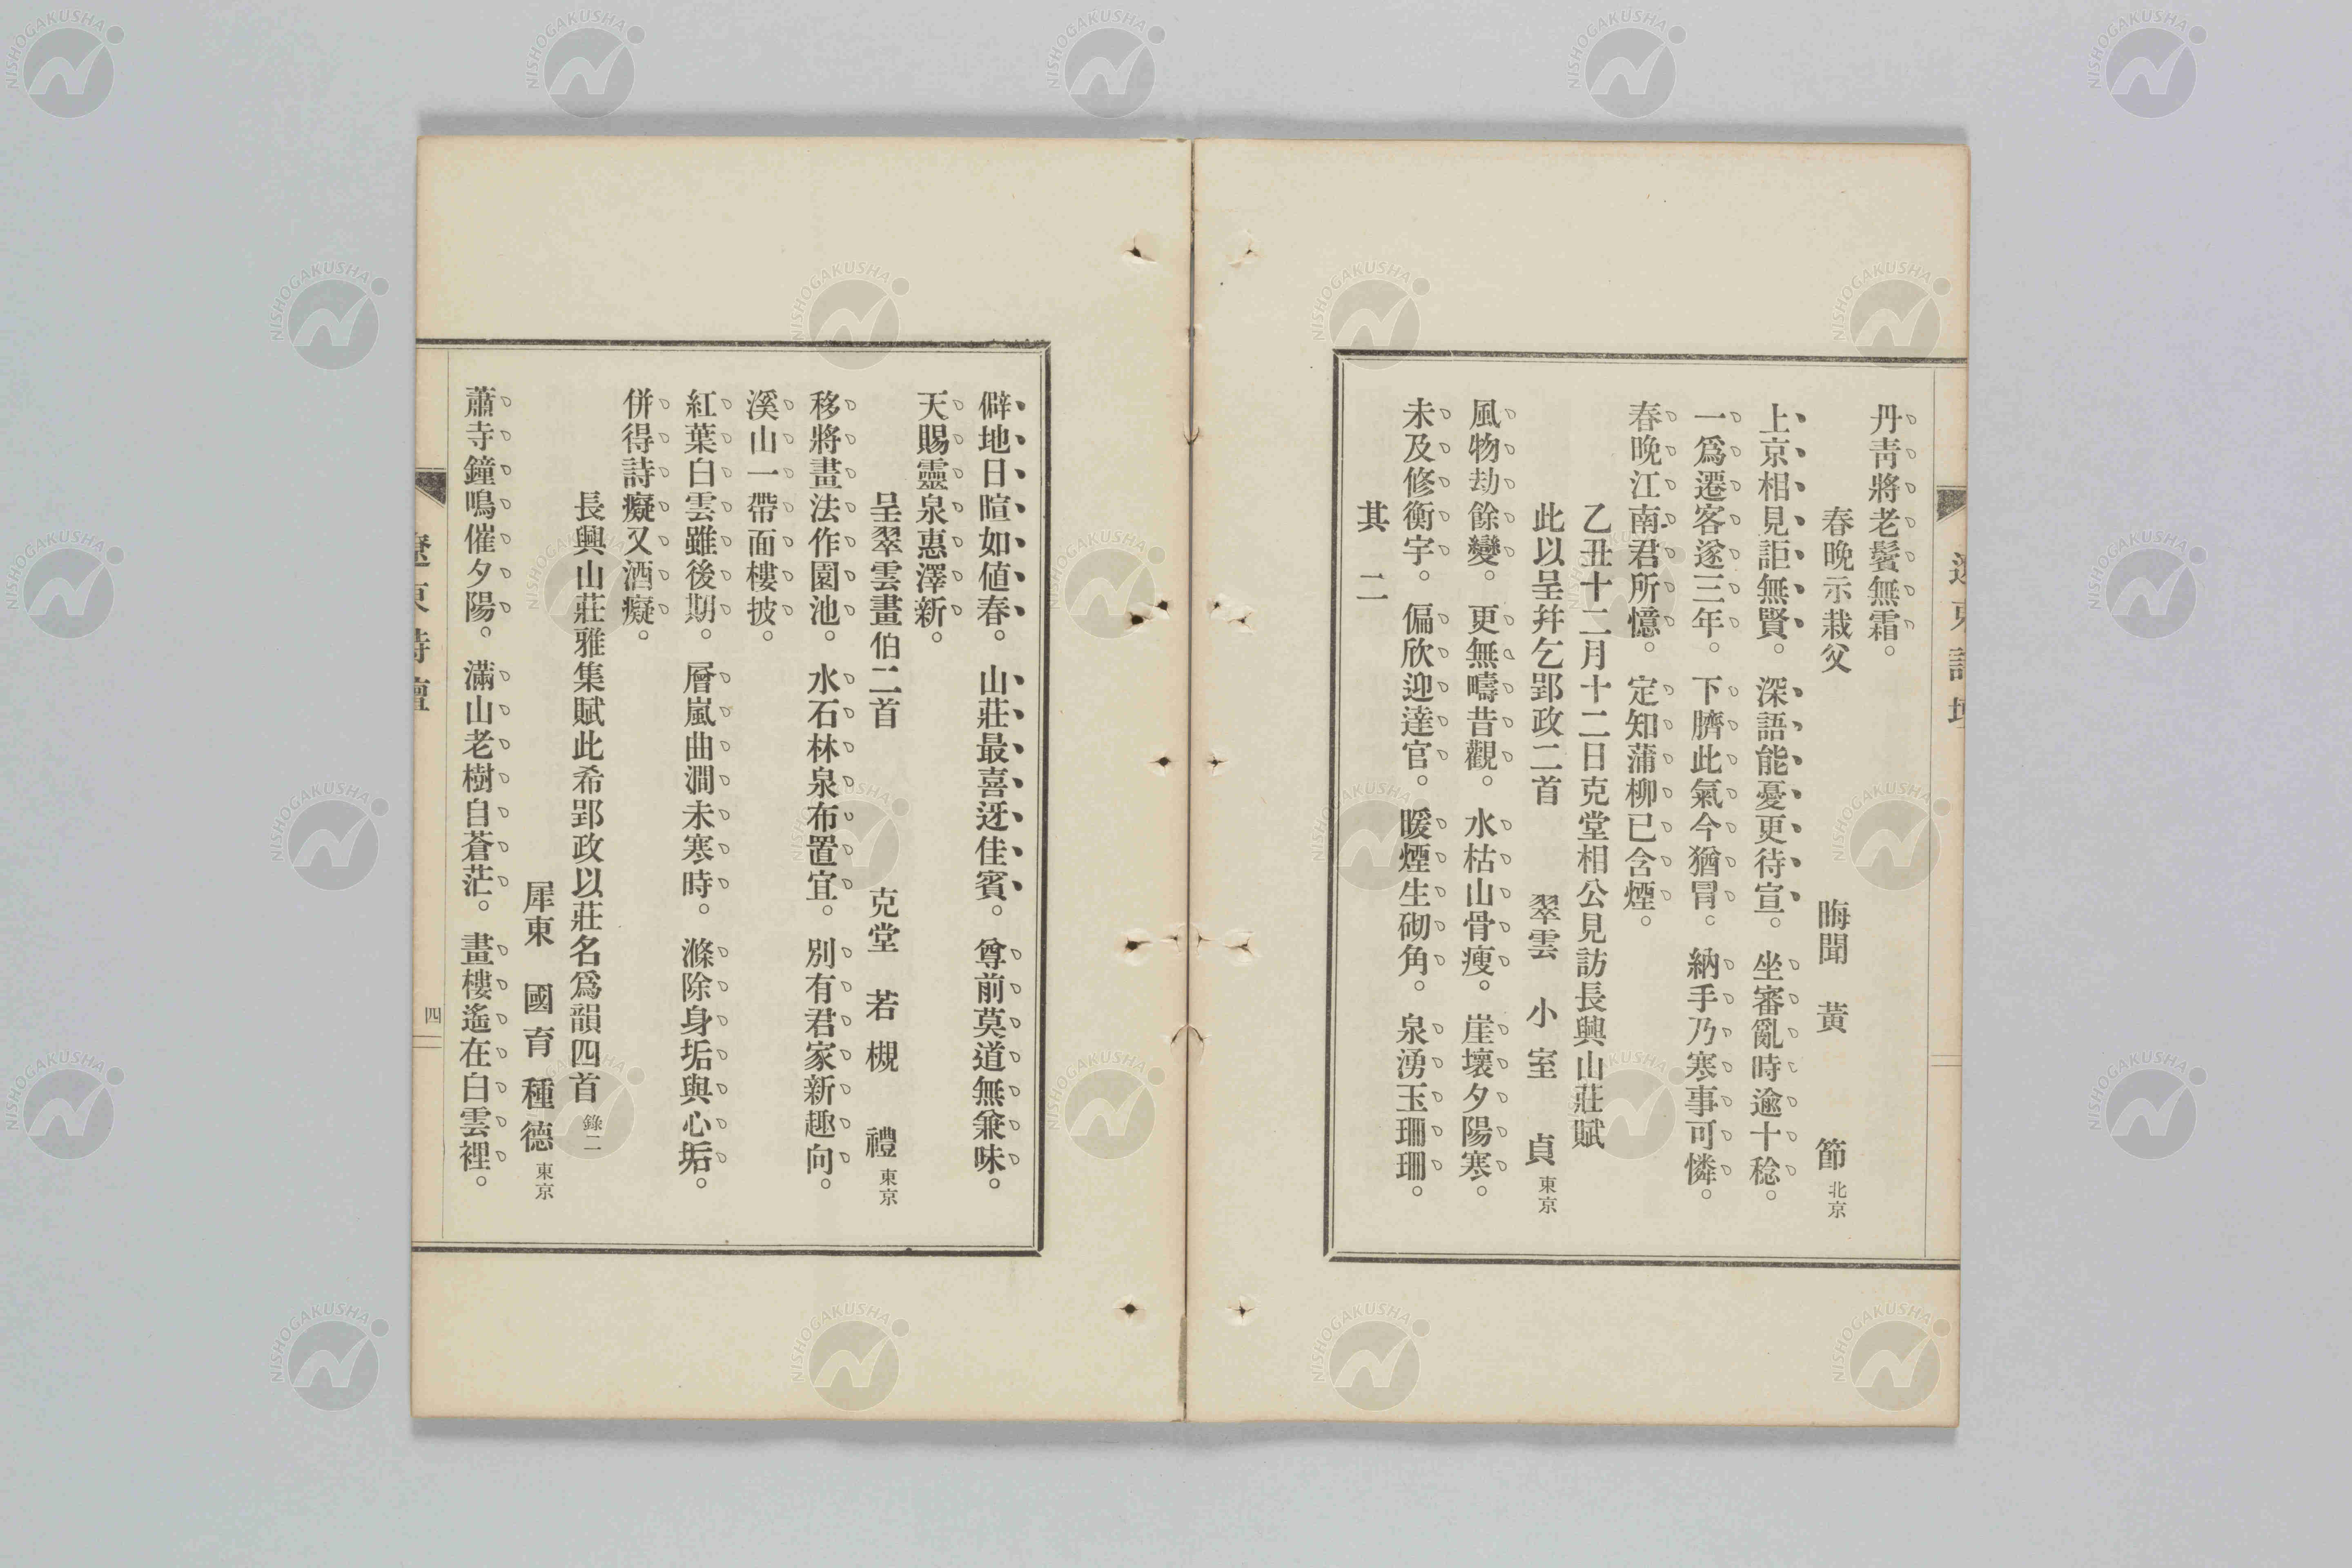 丹靑將老鬢無霜。
春晩示栽父　晦聞　黃　節　北京
上京相見詎無賢。深語能憂更待宣。坐審亂時逾十稔。
一爲遷客遂三年。下臍此氣今猶冒。納手乃寒事可憐。
春晩江南君所憶。定知蒲柳已含煙。
乙丑十二月十二日克堂相公見訪長興山莊賦
此以呈幷乞郢政二首　翠雲　小室　貞　東京
風物劫餘變。更無疇昔觀。水枯山骨瘦。崖壞夕陽寒。
未及修衡宇。偏欣迎達官。暖煙生砌角。泉湧玉珊珊。
其二
僻地日暄如値春。山莊最喜迓佳賓。尊前莫道無兼味。
天賜靈泉惠澤新。
呈翠雲畫伯二首　克堂　若槻　禮　東京
移將畫法作園池。水石林泉布置宜。別有君家新趣向。
溪山一帶面樓披。
紅葉白雲雖後期。層嵐曲澗未寒時。滌除身垢與心垢。
併得詩癡又酒癡。
長興山莊雅集賦此希郢政以莊名爲韻四首　錄二
犀東　國育　種德　東京
蕭寺鐘鳴催夕陽。滿山老樹自蒼茫。畫樓遙在白雲裡。
遼東詩壇
四
NISHOGAKUSHA